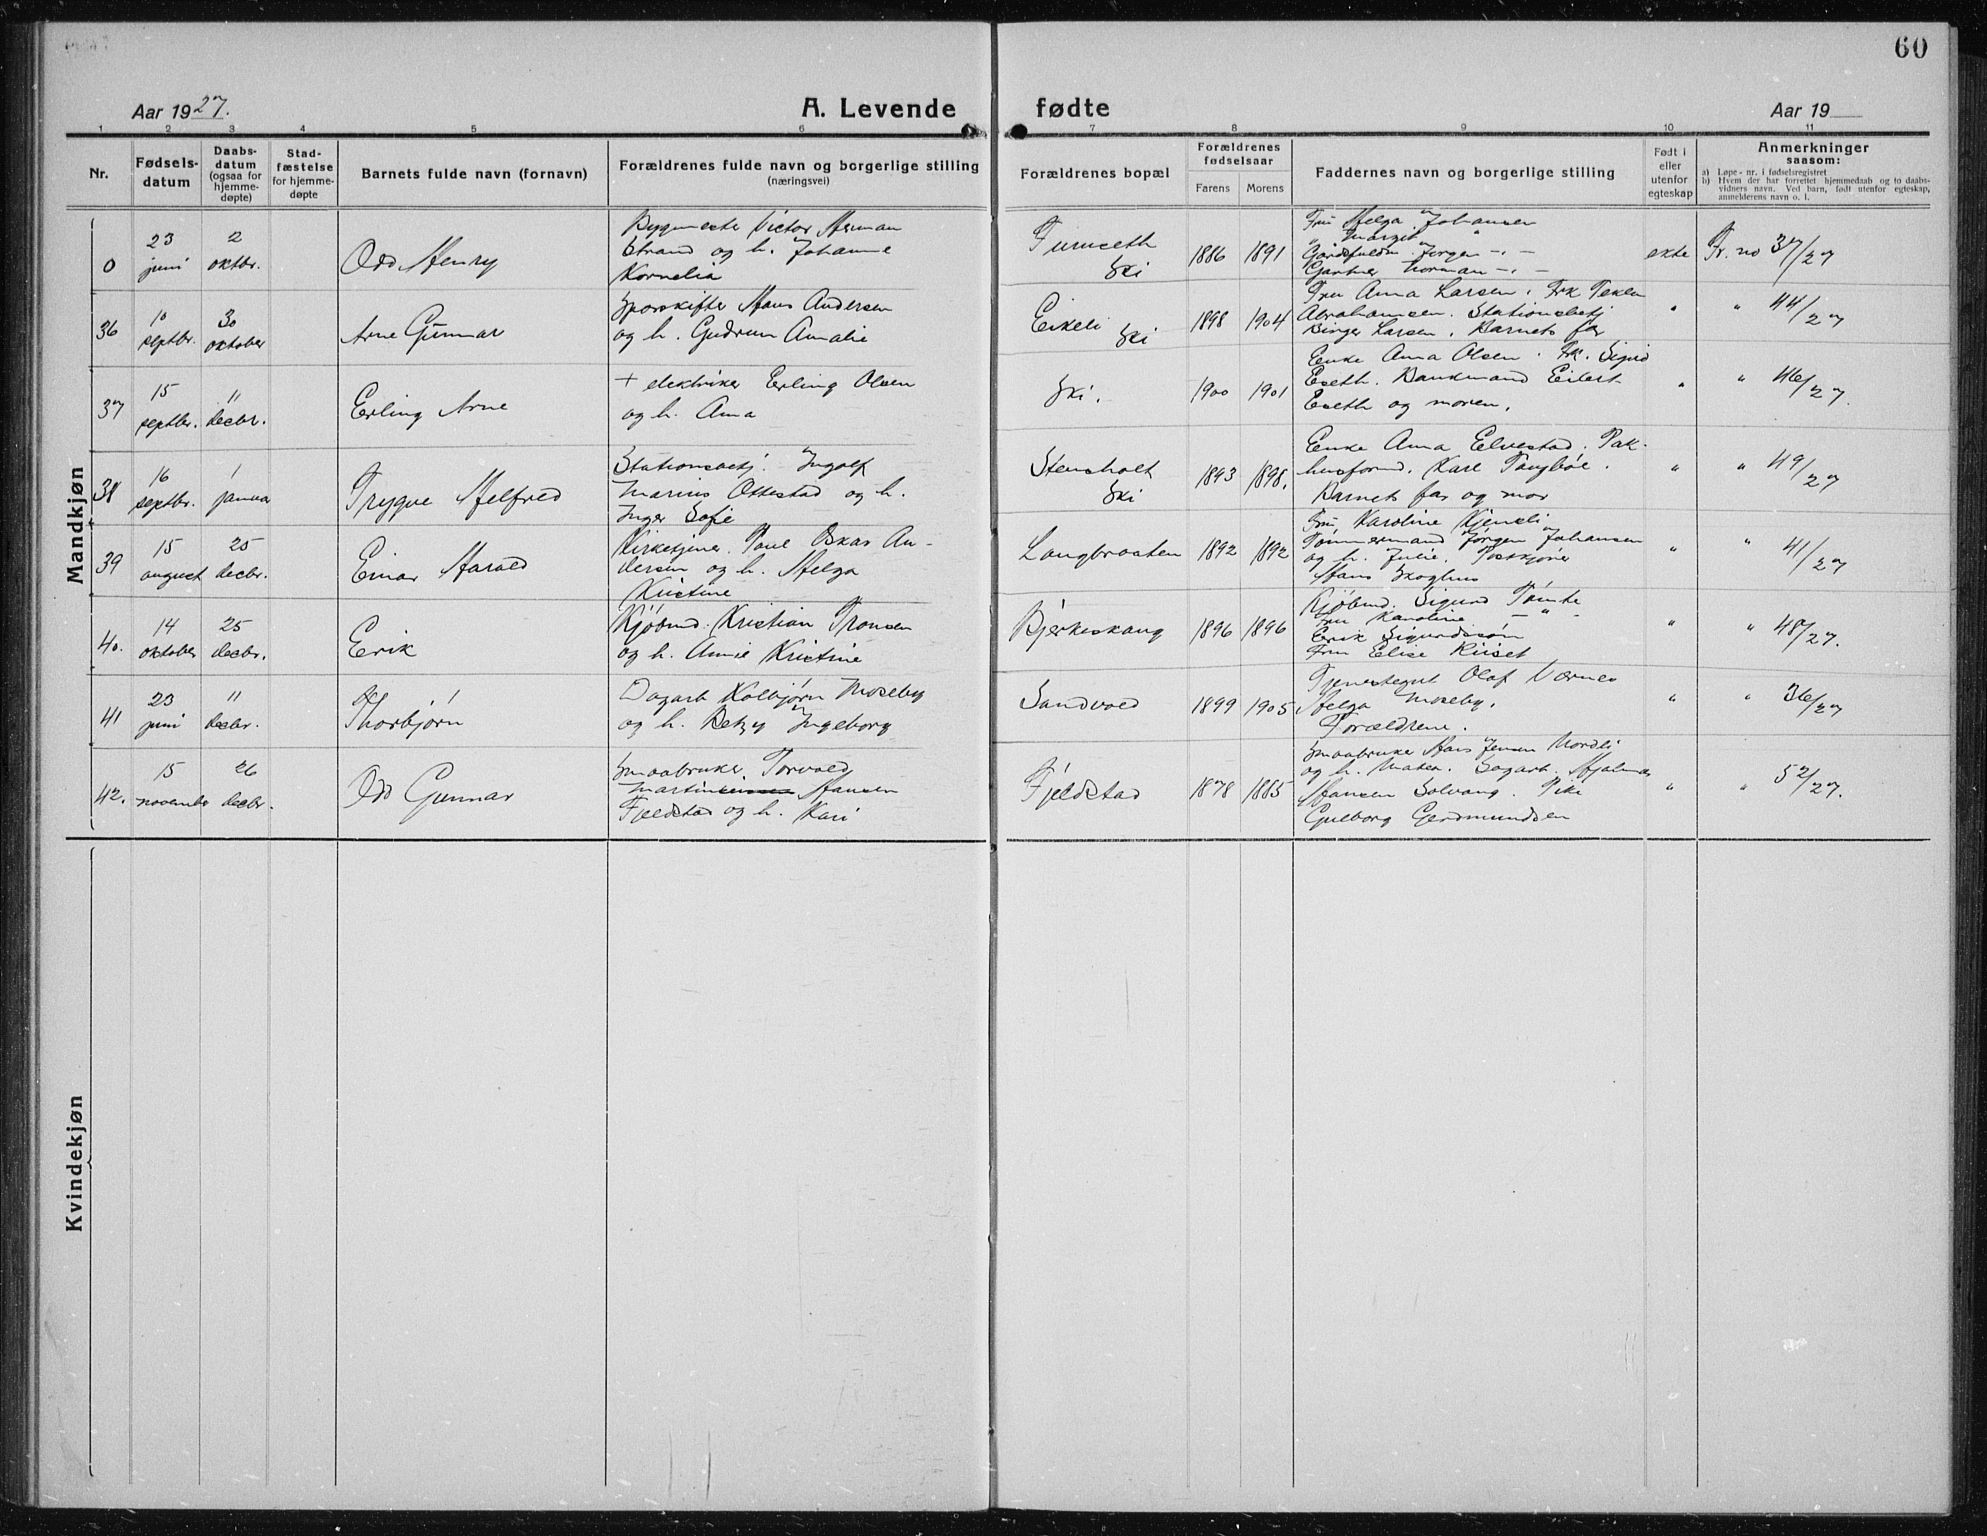 60
Aar 1927.
A. Levende
fødte
Aar 19
1 2 3 4 5 6 7 8 9 10 11
Nr.
Fødsels-
datum
Daabs-
datum
(ogsaa for
hjemme-
døpte)
Stad-
fæstelse
for hjemme-
døpte
Barnets fulde navn (fornavn)
Forældrenes fulde navn og borgerlige stilling
(næringsvei)
Forældrenes bopæl
Forældrenes
fødselsaar
Farens Morens
Faddernes navn og borgerlige stilling
Født i
eller
utenfor
egteskap
Anmerkninger
saasom:
a) Løpe-nr. i fødselsregistret
b) Hvem der har forrettet hjemmedaab og to daabs-
vidners navn. Ved barn, født utenfor egteskap,
anmelderens navn o. l.
Mandkjøn
0
23
juni
2
oktbr.
Odd Henry
Bygmester Victor Herman
Strand og h. Johanne
Kornelia
Furuseth
Ski
1886 1891
Fru Helga Johansen
" Margit "
Jørgen -"-
Gartner Norman -"-
ekte
Fr. no 37/27
36
10
septbr.
30
oktober
Arne Gunnar
Sporskifter Hans Andersen
og h. Gudrun Amalie
Eikeli
Ski
1898 1904
Fru Anna Larsen. Frk
Abrahamsen. Stationsbetj
Birger Larsen. Barnets far
"
" 44/27
37
15
septbr.
11
decbr.
Erling Arne
+ elektriker Erling Olsen
og h. Anna
Ski.
1900 1901
Enke Anna Olsen. Frk. Sigrid
Eseth. Bankmand Eilert
Eseth og moren.
"
" 46/27.
38
16
septbr.
1
januar
Trygve Helfred
Stationsbetj. Ingolf
Marius Ottestad og h.
Inger Sofie
Stensholt
Ski
1893 1898.
Enke Anna Elvestad. Pak-
husformd. Karl Tangbøe.
Barnets far og mor
"
" 49/27
39
15
august
25
decbr.
Einar Harald
Kirketjener. Paul Oskar An-
dersen og h. Helga
Kristine
Langbraaten
1892 1892
Fru Karoline Kjensli
Tømmermand Jørgen Johansen
og h. Julie. Postkjører
Hans Skoglus
"
" 41/27
40.
14
oktober
25
decbr.
Erik
Kjøbmd. Kristian Tronsen
og h. Annie Kristine
Bjerkeskaug
1896 1896
Kjøbmd. Sigurd Tomte
Fru Karoline - " -
Erik Sigurdssøn
Fru Elise Riiset
"
" 48/27.
41
23
juni
11
decbr.
Thorbjørn
Dagarb Kolbjørn Moseby
og h. Betzy Ingeborg
Sandvold
1899 1905
Tjenestegut Olaf Værnes
Helga Moseby.
Forældrene.
"
" 36/27
42.
15
november
26
decbr.
Odd Gunnar
Smaabruker Torvald
Martin Hansen
Fjeldstad og h. Kari
Fjeldstad
1878 1885
Smaabruker Hans Jensen Nordli
og h. Mathea. Dagarb. Hjalmar
Hansen Solvang. Pike
Gulborg Gerdmundsen
"
" 52/27.
Kvindekjøn